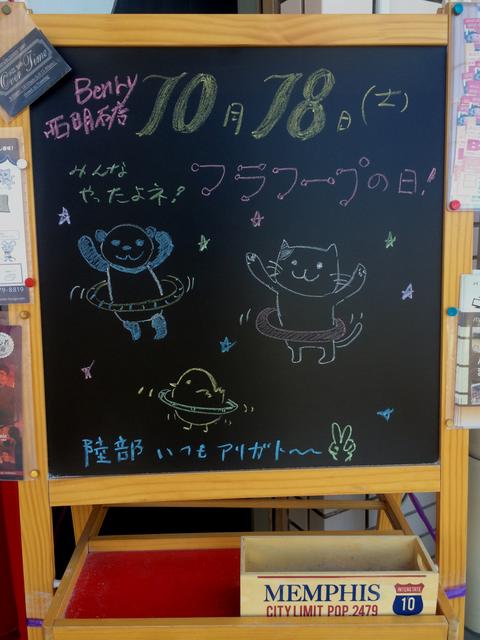 Benry
西明石
10月18日(土)
みんな
やったよネ?
フラフープの日!
陸部 いつも アリガト〜〜
Over Time
79-8819
MEMPHIS
CITY LIMIT POP. 2479
INTERSTATE
10